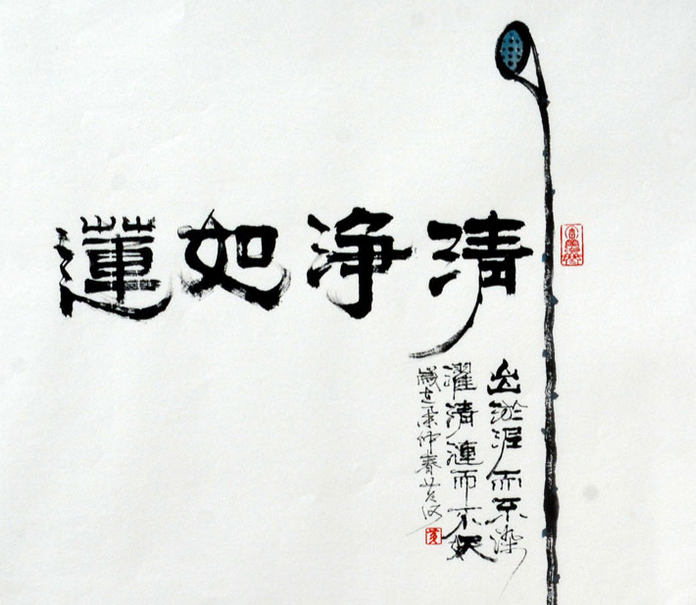 清淨如蓮
出淤泥而不染
濯清漣而不妖
歲仲春